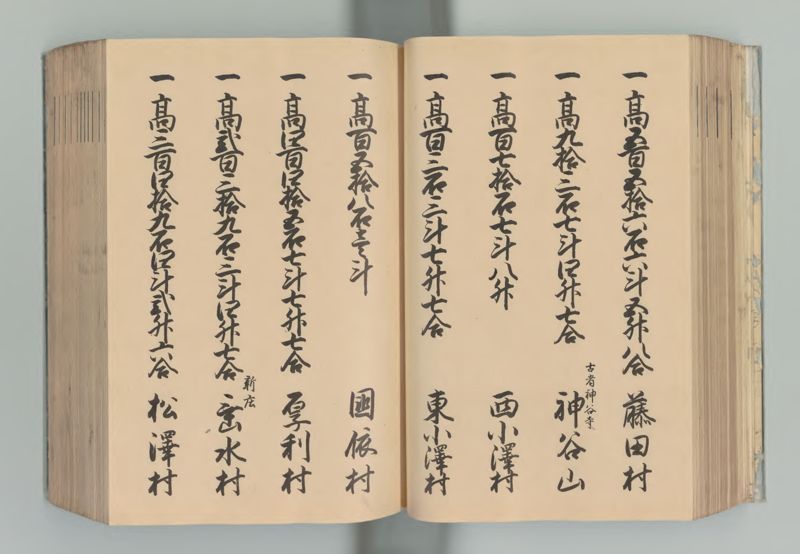 一 髙五百五拾六石六斗五升八合 藤田村
一 髙九拾三石七斗四升七合 神谷山
古者神谷寺
一 髙百七拾石七斗八升 西小澤村
一 髙百三石三斗七升七合 東小澤村
一 髙百五拾八石壱斗 國依村
一 髙四百四拾五石七斗七升七合 厚利村
一 髙弐百三拾九石三斗四升七合 水村
新庄
一 髙三百四拾九石四斗弐升六合 松澤村